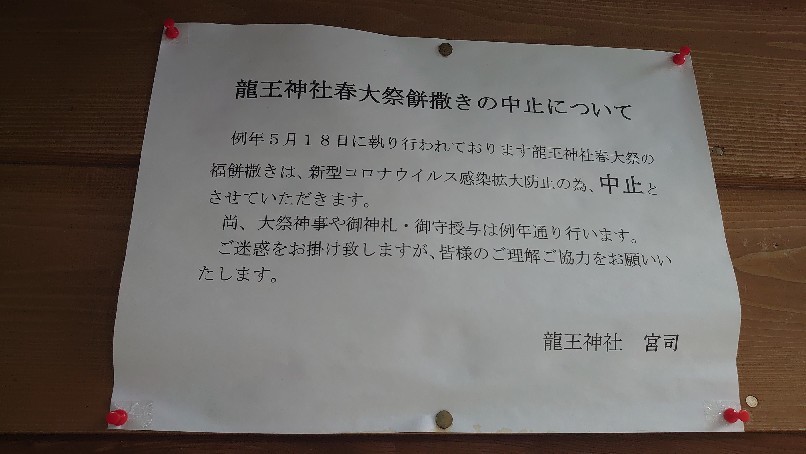 龍王神社春大祭餅撒きの中止について
例年５月１８日に執り行われております龍王神社春大祭の
福餅撒きは、新型コロナウイルス感染拡大防止の為、中止と
させていただきます。
尚、大祭神事や御神札・御守授与は例年通り行います。
ご迷惑をお掛け致しますが、皆様のご理解ご協力をお願いい
たします。
龍王神社　宮司